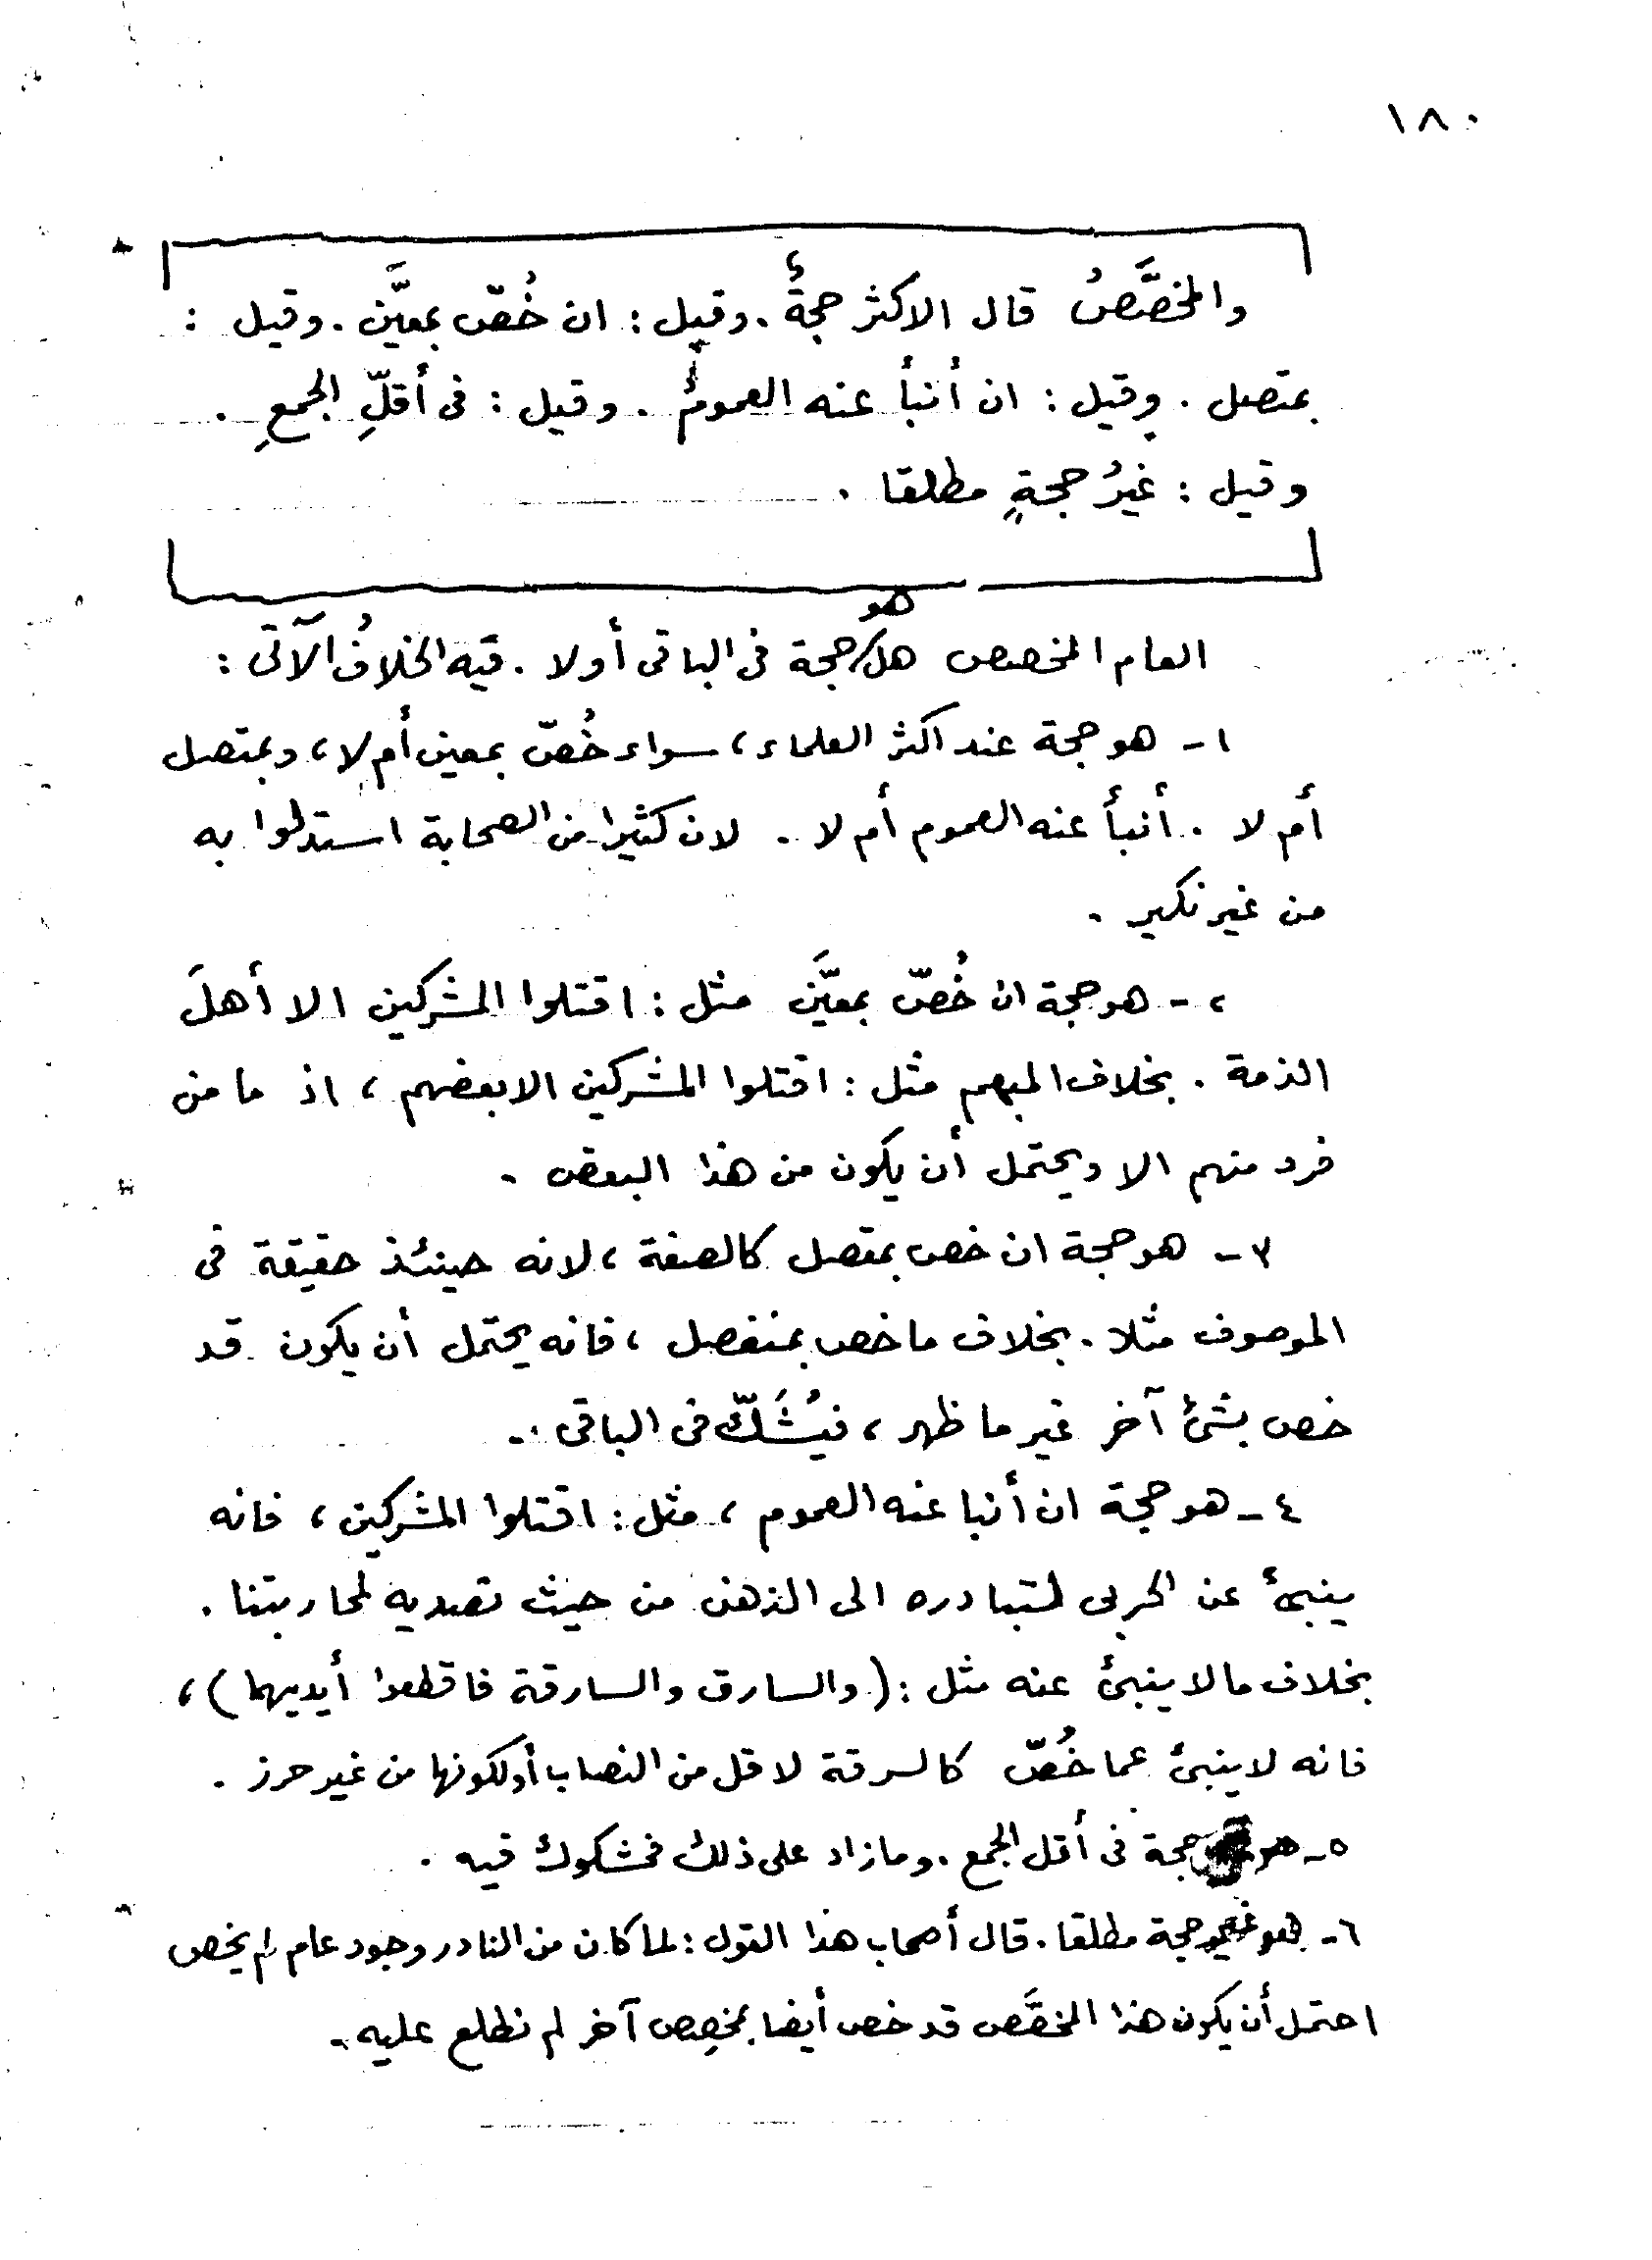 ١٨٠
والمخصَّصُ قال الاكثر حجةٌ . وقيل : ان خُصّ بمعيَّن . وقيل :
بمتصل . وقيل : ان أنبأ عنه العمومُ . وقيل : فى أقلِّ الجمعِ .
وقيل : غيرُ حجةٍ مطلقا .
العام المخصص هل هو حجة فى الباقى أولا . فيه الخلافُ الآتى :
١- هو حجة عند اكثر العلماء ، سواء خُصّ بمعين أم لا ، وبمتصل
أم لا . أنبأ عنه العموم أم لا . لان كثيرا من الصحابة استدلوا به
من غير نكير .
٢- هو حجة ان خُصّ بمعيَّن مثل : اقتلوا المشركين الا أهلَ
الذمة . بخلاف المبهم مثل : اقتلوا المشركين الا بعضهم ، اذ ما من
فرد منهم الا ويحتمل أن يكون من هذا البعض .
٣- هو حجة ان خص بمتصل كالصفة ، لانه حينئذ حقيقة فى
الموصوف مثلا . بخلاف ما خص بمنفصل ، فانه يحتمل أن يكون قد
خص بشئ آخر غير ما ظهر ، فيُشَكّ فى الباقى .
٤- هو حجة ان أنبا عنه العموم ، مثل : اقتلوا المشركين ، فانه
ينبئ عن الحربى لتبادره الى الذهن من حيث تصديه لمحاربتنا .
بخلاف ما لا ينبئ عنه مثل : (والسارق والسارقة فاقطعوا أيديهما) ،
فانه لا ينبئ عما خُصّ كالسرقة لاقل من النصاب أو لكونها من غير حرز .
٥- هو حجة فى أقل الجمع . وما زاد على ذلك فمشكوك فيه .
٦- هو غير حجة مطلقا . قال أصحاب هذا القول : لما كان من النادر وجود عام لم يخص
احتمل أن يكون هذا المخصَّص قد خص أيضا بمخصِص آخر لم نطلع عليه .